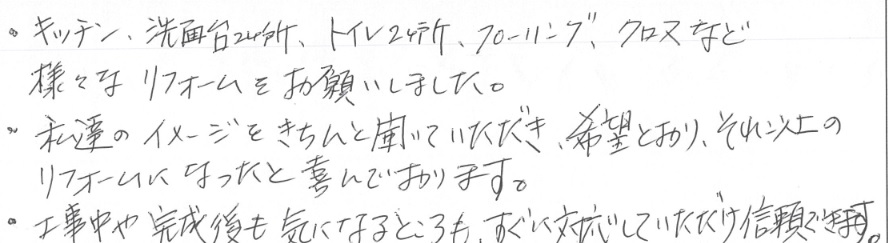 ・キッチン、洗面台2ヶ所、トイレ2ヶ所、フローリング、クロスなど
様々なリフォームをお願いしました。
・私達のイメージをきちんと聞いていただき、希望どおり、それ以上の
リフォームになったと喜んでおります。
・工事中や完成後も気になるところも、すぐに対応していただけ信頼できます。